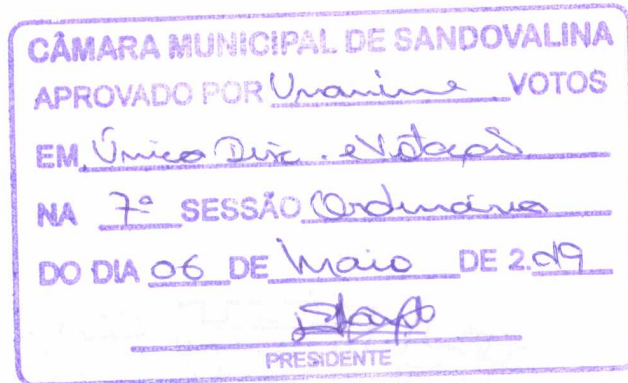 CÂMARA MUNICIPAL DE SANDOVALINA
APROVADO POR Unanime VOTOS
EM Única Disc. e Votação
NA 7ª SESSÃO Ordinária
DO DIA 06 DE Maio DE 2.019
PRESIDENTE